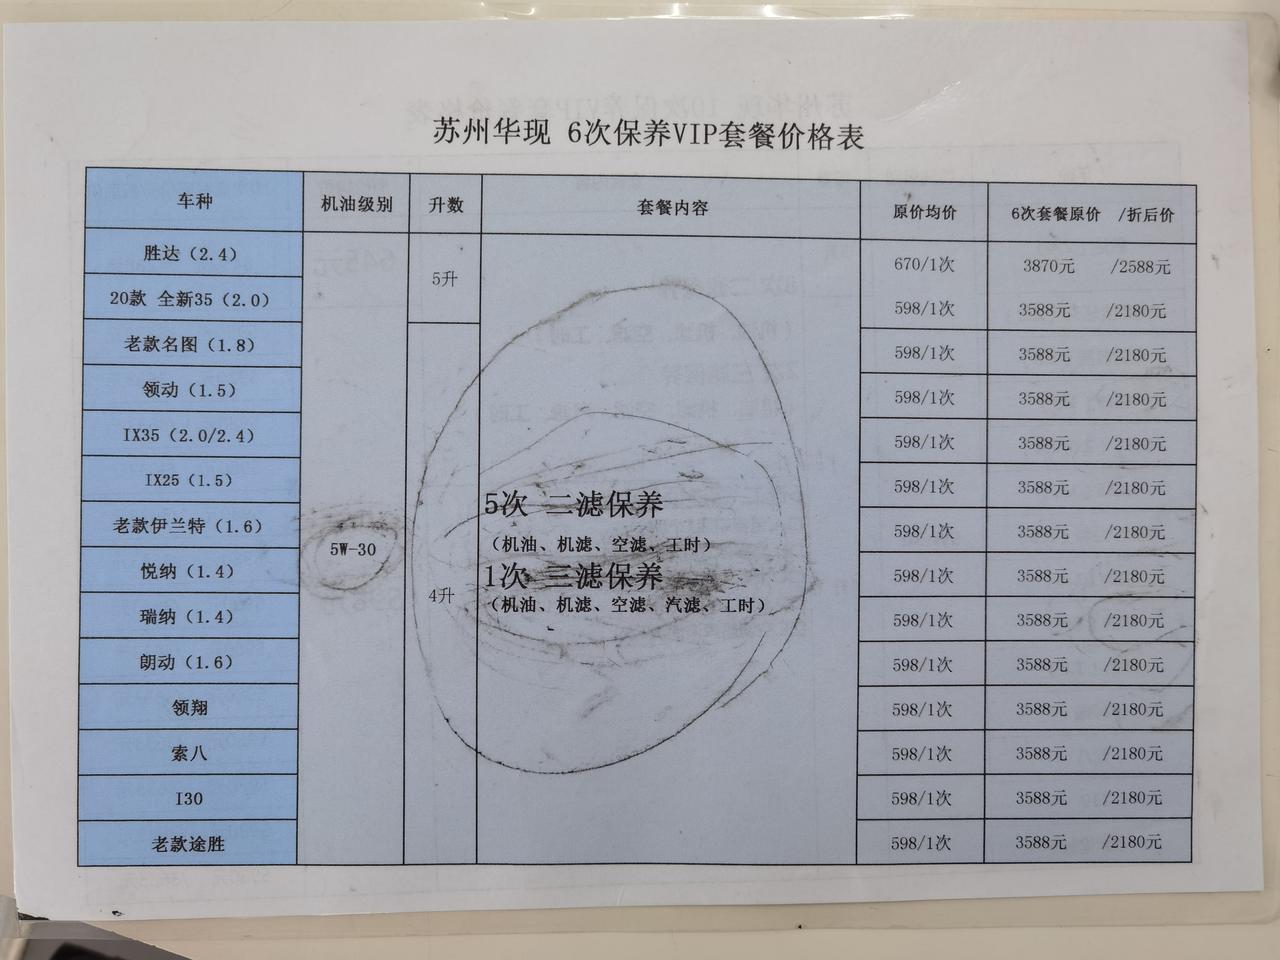 苏州华现 6次保养VIP套餐价格表
车种 机油级别 升数 套餐内容 原价均价 6次套餐原价 /折后价
胜达（2.4） 5升 670/1次 3870元 /2588元
20款 全新35（2.0） 598/1次 3588元 /2180元
老款名图（1.8） 598/1次 3588元 /2180元
领动（1.5） 598/1次 3588元 /2180元
IX35（2.0/2.4） 598/1次 3588元 /2180元
IX25（1.5） 598/1次 3588元 /2180元
老款伊兰特（1.6） 598/1次 3588元 /2180元
5W-30
4升
5次 二滤保养
（机油、机滤、空滤、工时）
1次 三滤保养
（机油、机滤、空滤、汽滤、工时）
悦纳（1.4） 598/1次 3588元 /2180元
瑞纳（1.4） 598/1次 3588元 /2180元
朗动（1.6） 598/1次 3588元 /2180元
领翔 598/1次 3588元 /2180元
索八 598/1次 3588元 /2180元
I30 598/1次 3588元 /2180元
老款途胜 598/1次 3588元 /2180元